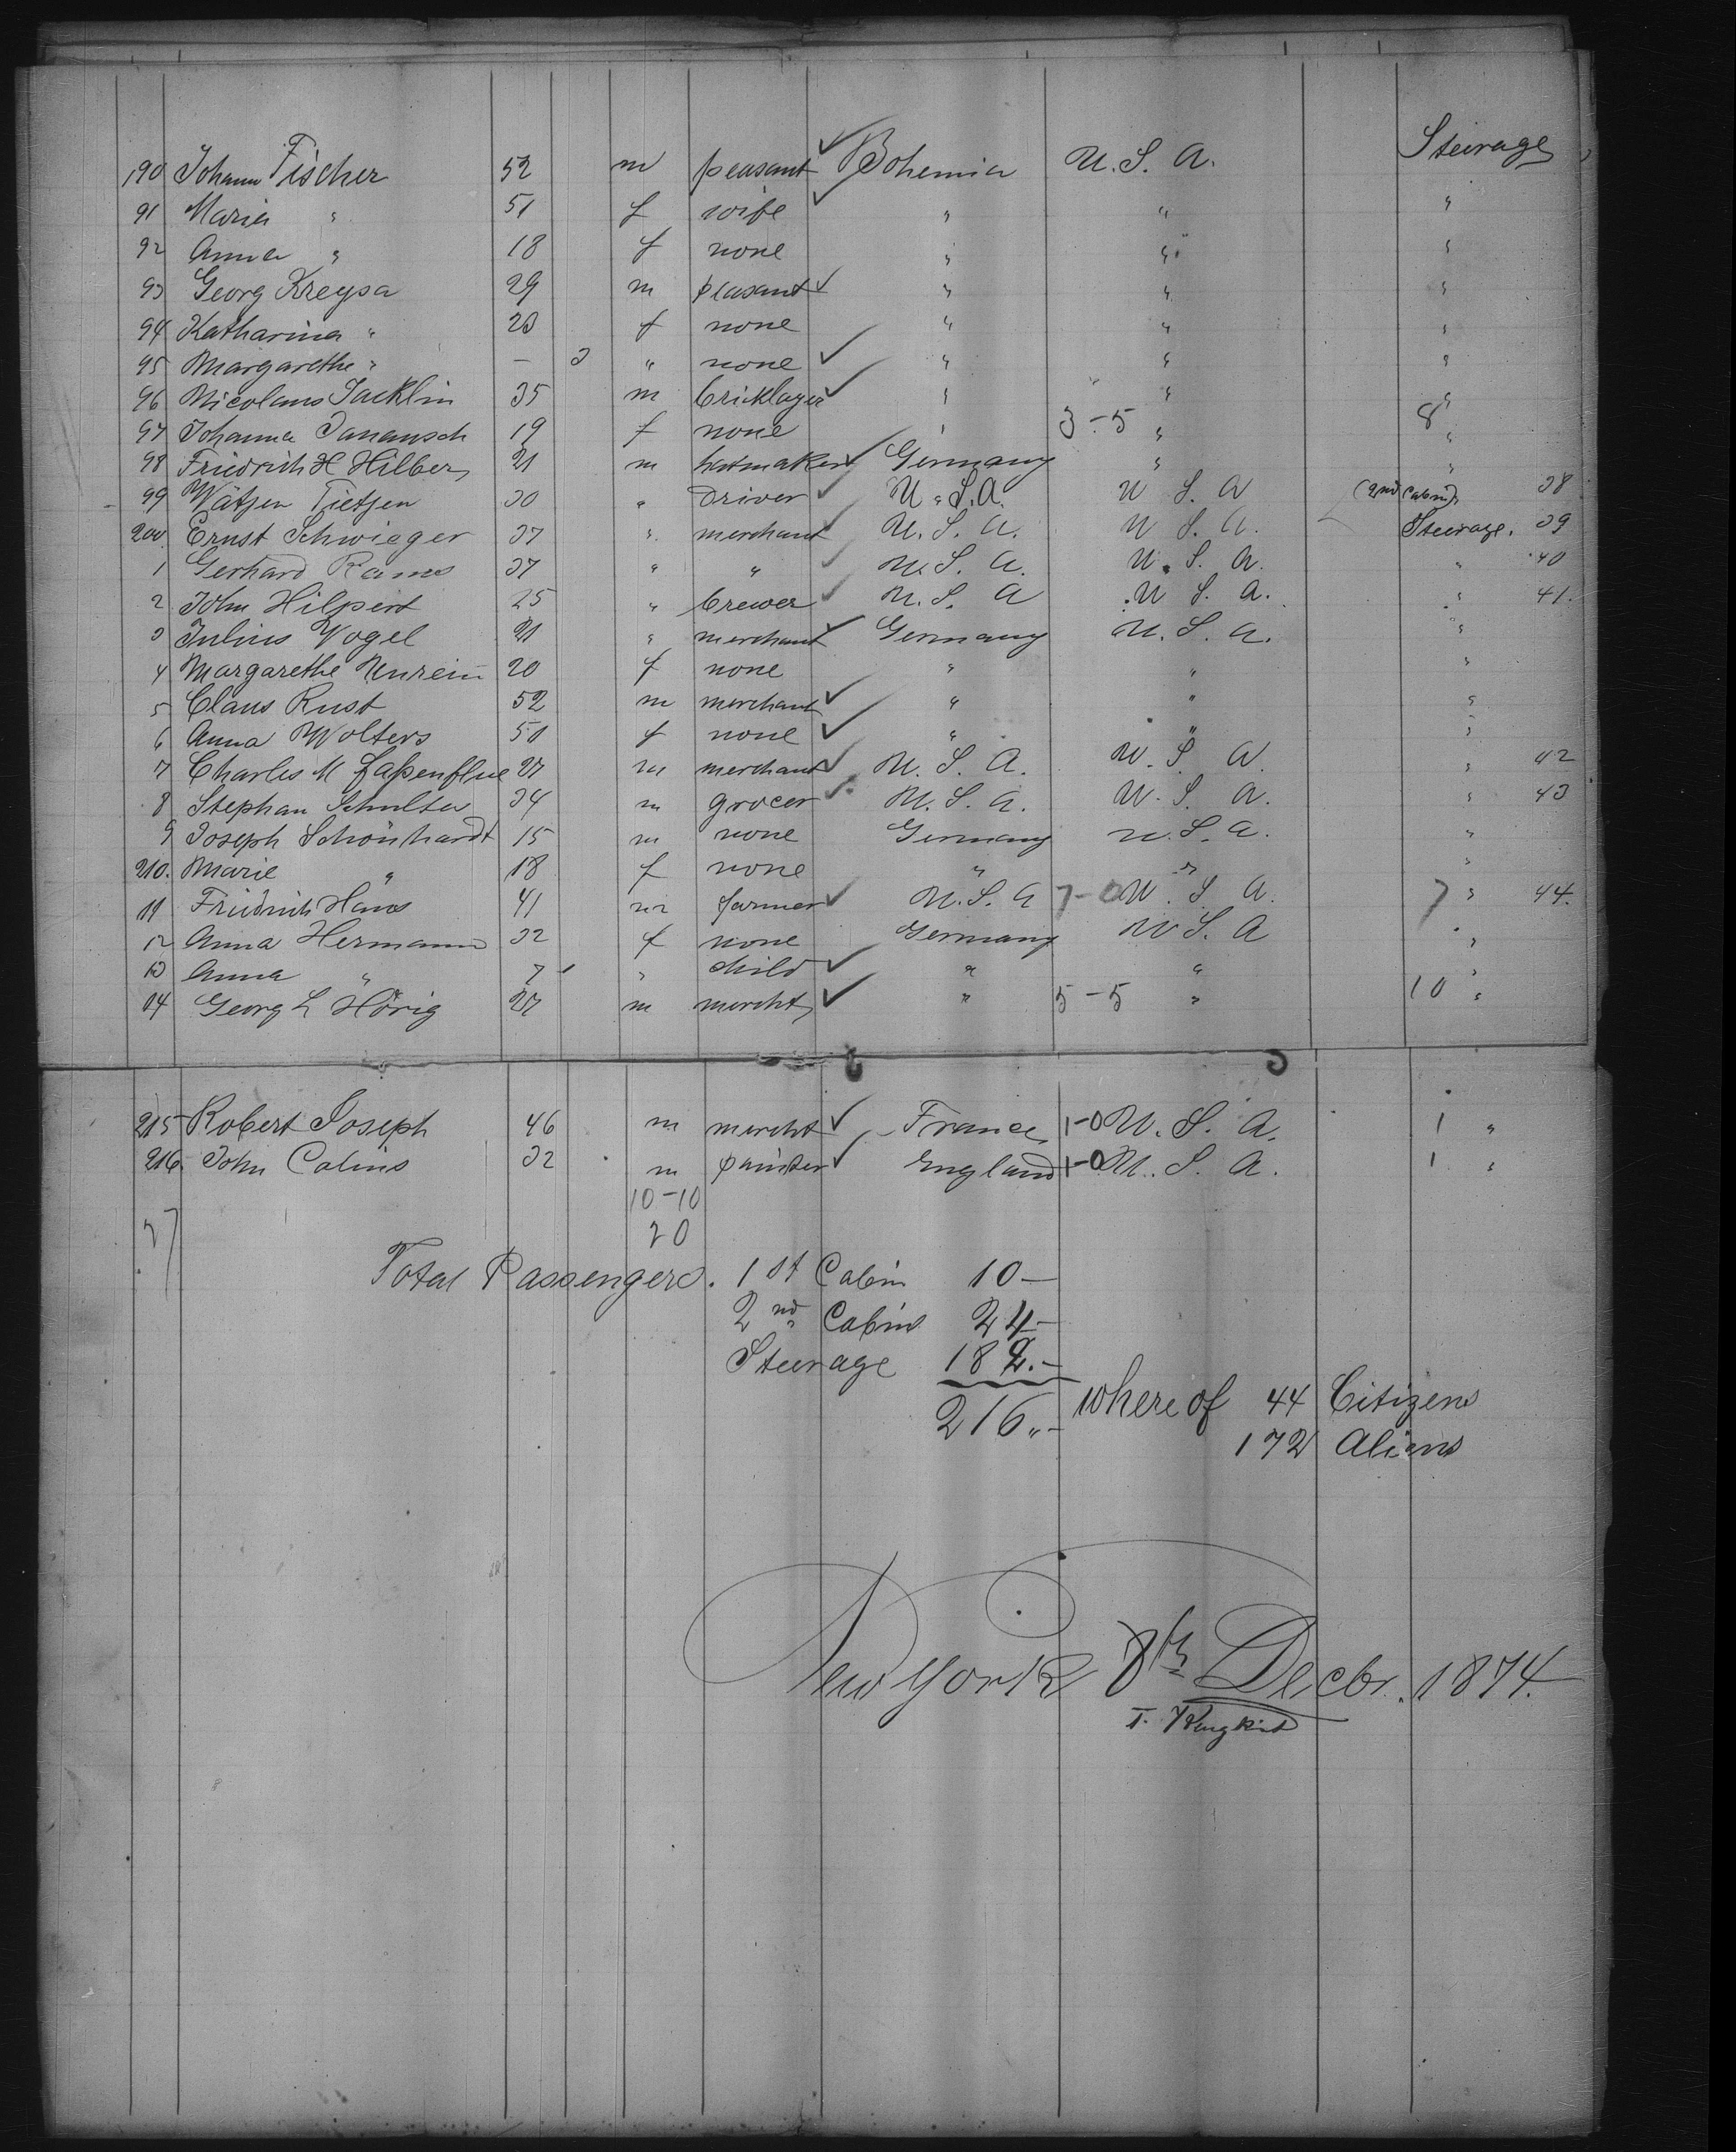 190 Johann Fischer 52 m peasant Bohemia U. S. A. Steerage
91 Maria " 51 f wife " " "
92 Anna " 18 f none " " "
93 Georg Kreysa 29 m peasant " " "
94 Katharina " 20 f none " " "
95 Margarethe " — 3 " none " " "
96 Nicolaus Jacklin 35 m bricklayer " " "
97 Johanna Janausch 19 f none " 3-5 " 8 "
98 Friedrich H Hilbers 21 m hatmaker Germany " "
99 Wätjen Tietjen 30 " driver U. S. A. U S. A (2nd Cabin) 38
200 Ernst Schwieger 37 " merchant U. S. A. U S. A. Steerage. 39
1 Gerhard Rams 37 " " U. S. A. U. S. A. " 40
2 John Hilpert 25 " brewer U. S. A U S. A. " 41.
3 Julius Vogel 21 " merchant Germany U. S. A. "
4 Margarethe 20 f none " " "
5 Claus Rust 52 m merchant " " "
6 Anna Wolters 50 f none " " "
7 Charles M 27 m merchant U. S. A. U. S. A. " 42
8 Stephan Schulter 34 m grocer U. S. A. U. S. A. " 43
9 Joseph Schönhardt 15 m none Germany U. S. A. "
210. Marie " 18 f none " " "
11 Friedrich Haus 41 m farmer U. S. A 7-0 U. S. A. 7 " 44.
12 Anna Hermann 32 f none Germany U S. A "
13 Anna " 7 " child " " "
14 Georg L Hörig 27 m mercht " 5-5 " 10 "
215 Robert Joseph 46 m mercht France 1-0 U. S. A. 1 "
216. John Colins 32 m painter England 1-0 U. S. A. 1 "
10-10
20
27
Total Passengers. 1st Cabin 10—
2nd Cabin 24—
Steerage 182.—
216.— where of 44 Citizens
172 Aliens
New York 8th Decbr. 1874.